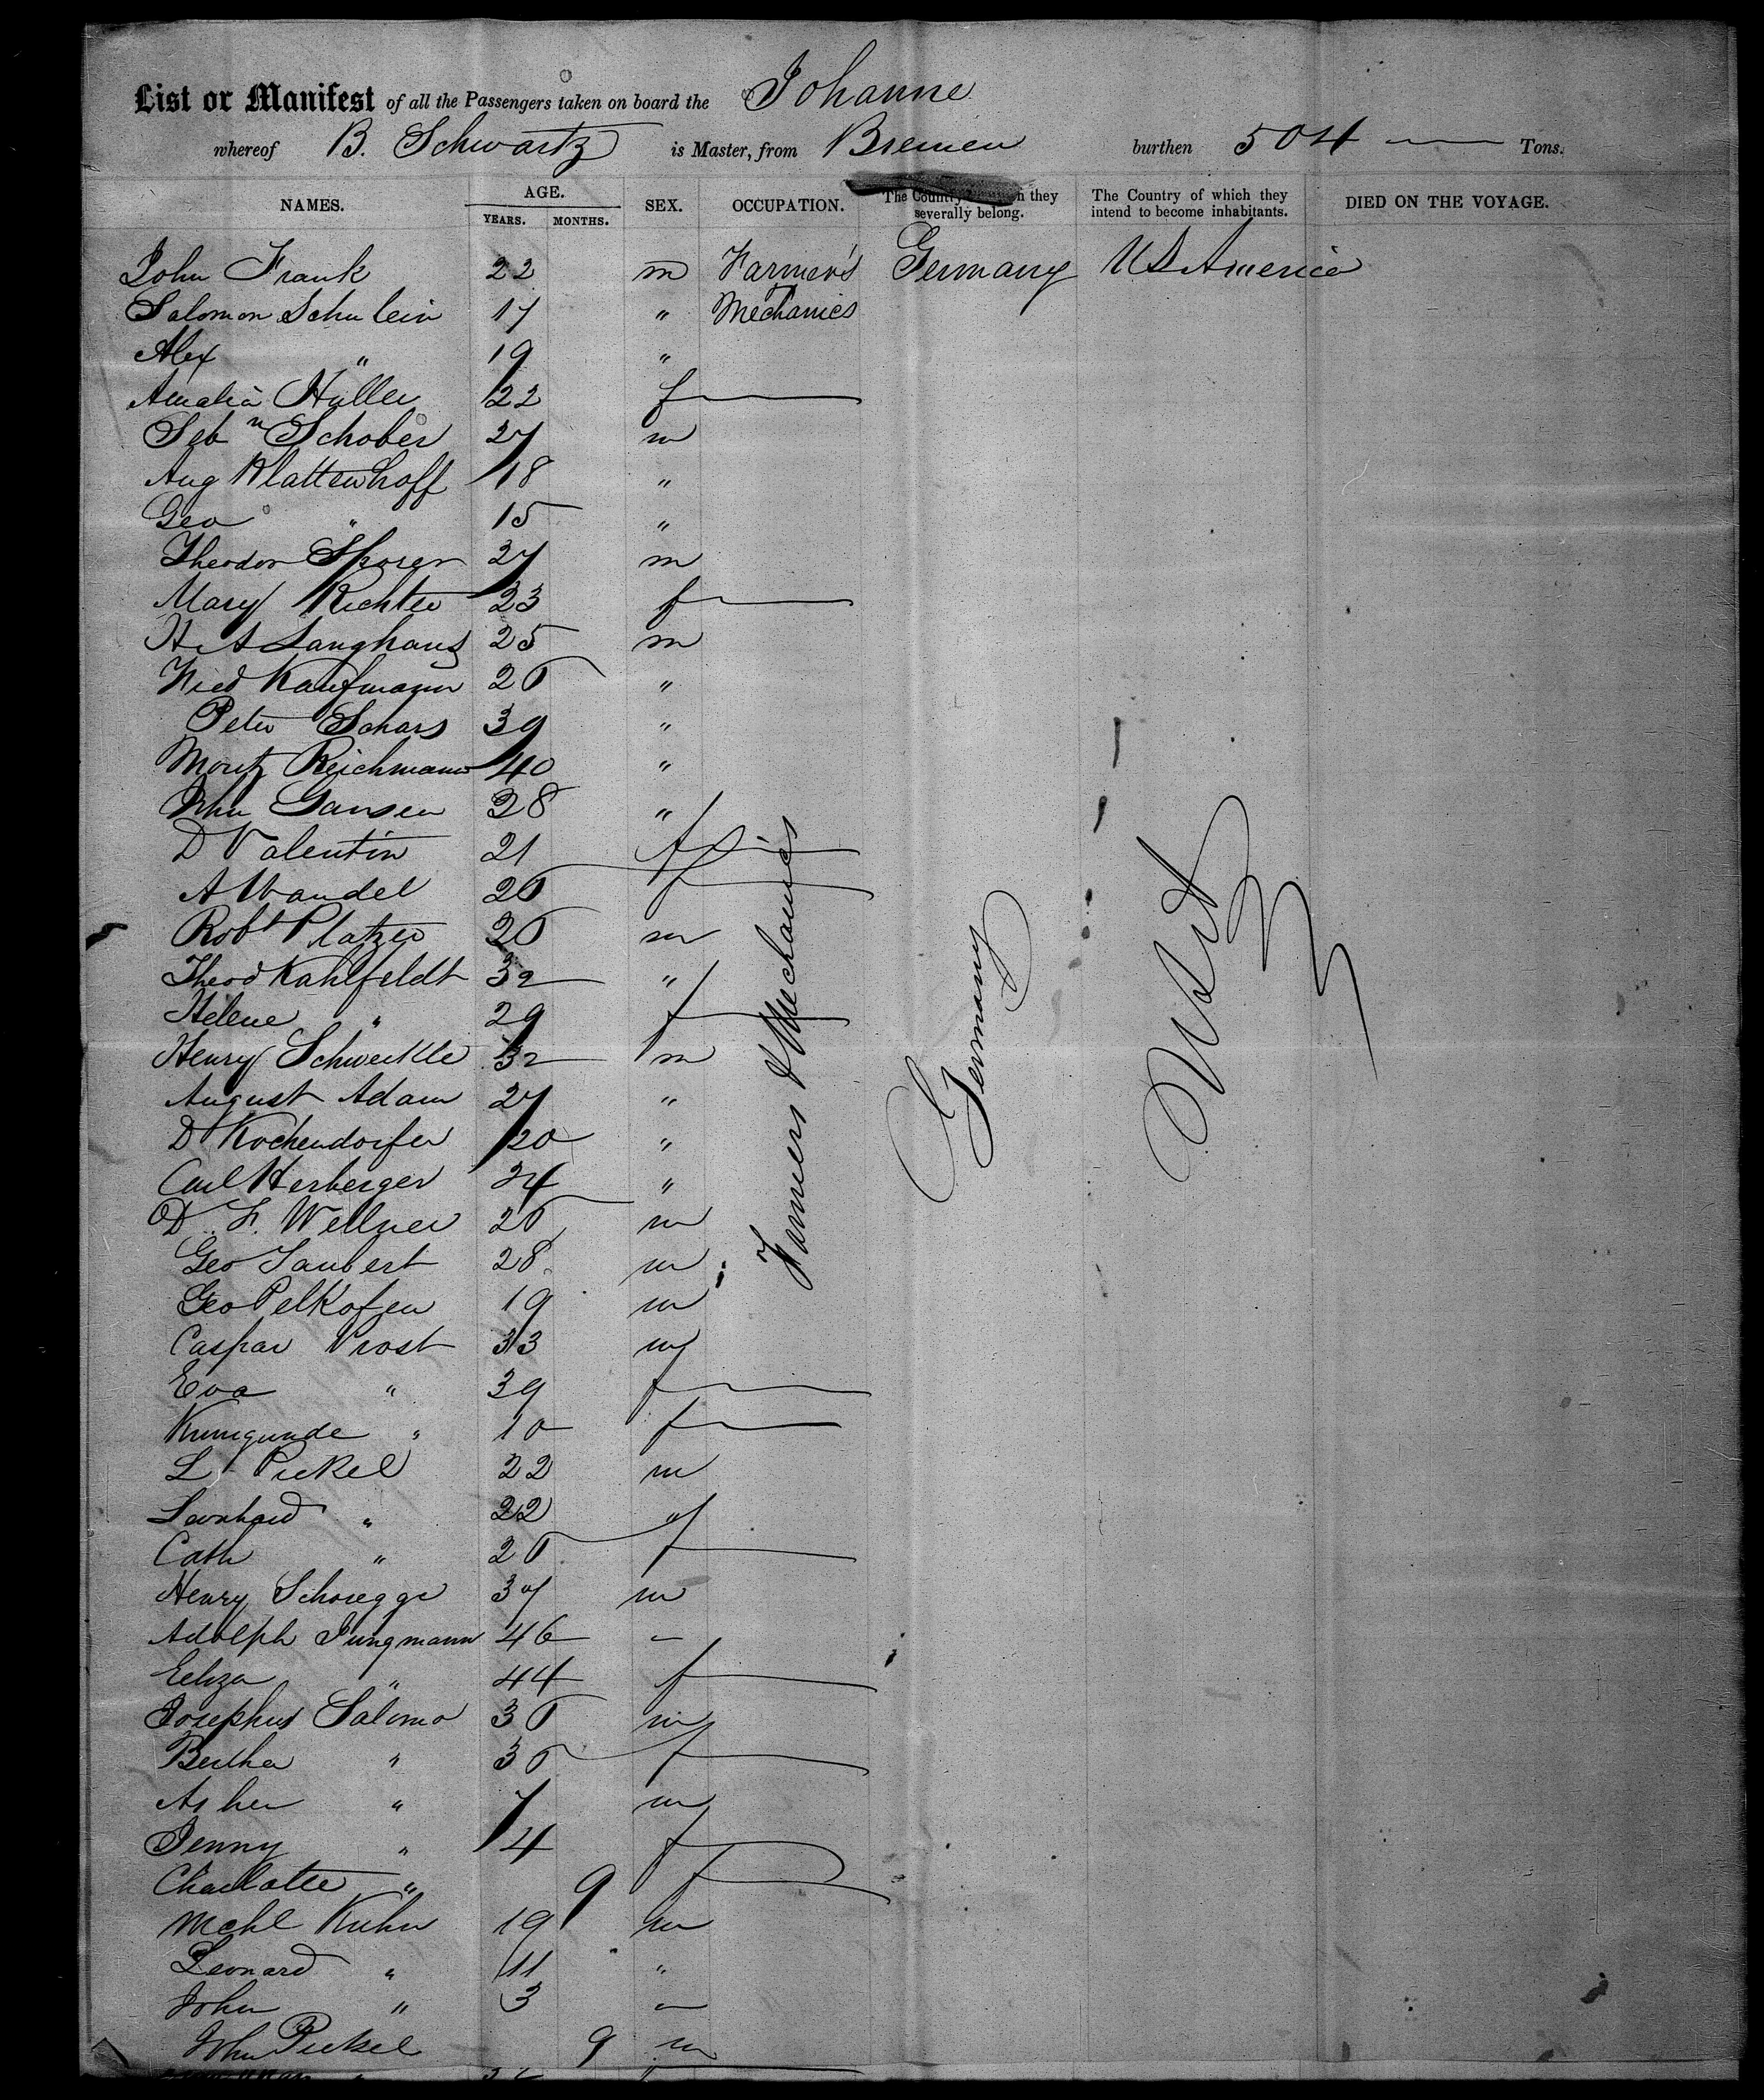 List or Manifest of all the Passengers taken on board the Johanne
whereof B. Schwartz is Master, from Bremen burthen 504 — Tons.
NAMES. AGE. YEARS. MONTHS. SEX. OCCUPATION. The Country they severally belong. The Country of which they intend to become inhabitants. DIED ON THE VOYAGE.
John Frank 22 m Farmer's Germany US America
Salomon Schulein 17 " Mechanics
Alex " 19 "
Amalia Haller 22 f
Seb n Schober 27 m
Aug Klattenhoff 18 "
Geo " 15 "
Theodor 27 m
Mary Richter 23 f
H A Langhans 25 m
Fried Kaufmann 26 "
Peter Schars 39 "
Moritz Reichmann 40 "
John Gansen 28 "
D Valentin 21 f
A Wandel 26 f
Robt Platzer 26 m
Theod Kahlfeldt 32 "
Helene " 29 f
Henry Schweikle 32 m
August Adam 27 "
D Kochendorfer 20 "
Carl Herberger 24 "
D. F. Wellner 26 m
Geo Taubert 28 m
Geo Pelkofen 19 m
Caspar Prost 33 m
Eva " 39 f
Kunigunde " 10 f
L Pickel 22 m
Leonhard " 22 "
Cath " 26 f
Henry 37 m
Adolph Jungmann 46 "
Eliza " 44 f
Josephus Salomo 36 m
Bertha " 36 f
Asher " 7 m
Jenny " 4 f
Charlotte " 9 f
Mchl Kuhn 19 m
Leonard " 11 "
John " 3 "
John Pickel 9 m
Farmers & Mechanics
Germany
U S A